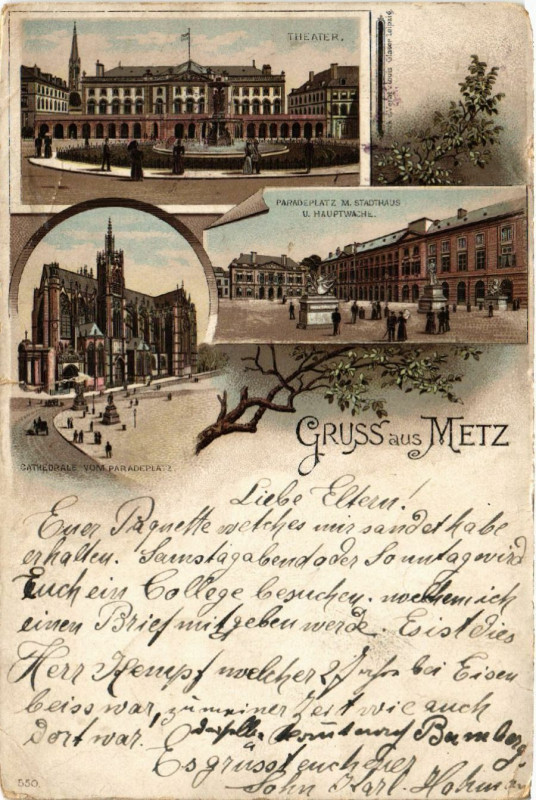 THEATER.
PARADEPLATZ M. STADTHAUS
U. HAUPTWACHE.
CATHEDRALE VOM PARADEPLATZ.
GRUSS aus METZ
Liebe Eltern!
Euer Paquette welches mir sandet habe
erhalten. Samstagabend oder Sonntag wird
Euch ein College besuchen. welchem ich
einen Brief mitgeben werde. Es ist dies
Herr Kempf welcher 2 Jahre bei Eisen
beiss war, zu meiner Zeit wie auch
dort war! derselbe kommt nach Bamberg.
Es grüsst euch euer
Sohn Karl. Hohmann
550.